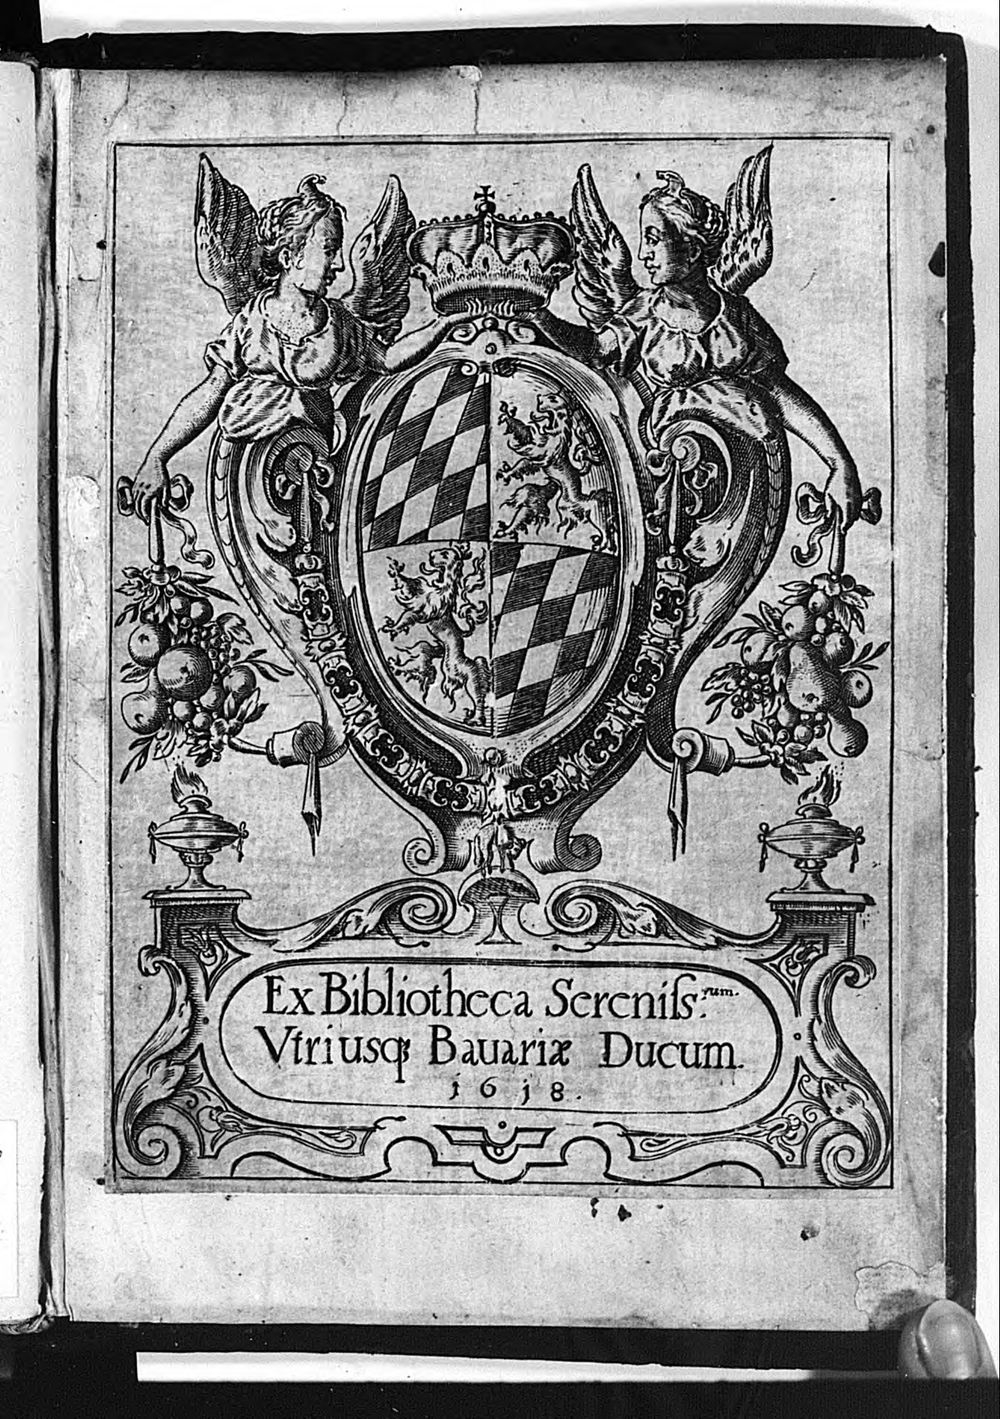 Ex Bibliotheca Sereniſs.rum.
Vtriusqꝫ Bauariæ Ducum.
1618.